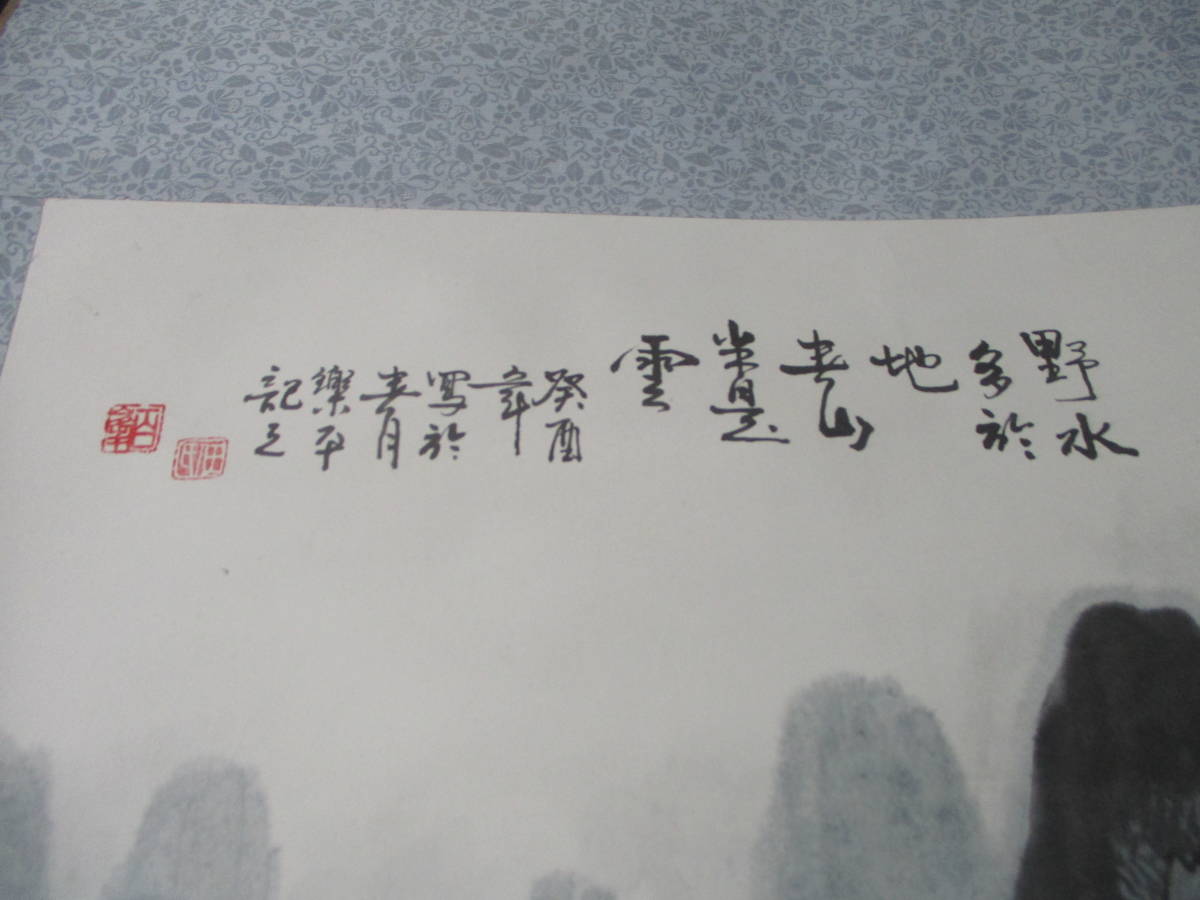 野水
多於
地
春山
半是
雲
癸酉
年
写於
春月
樂平
記之